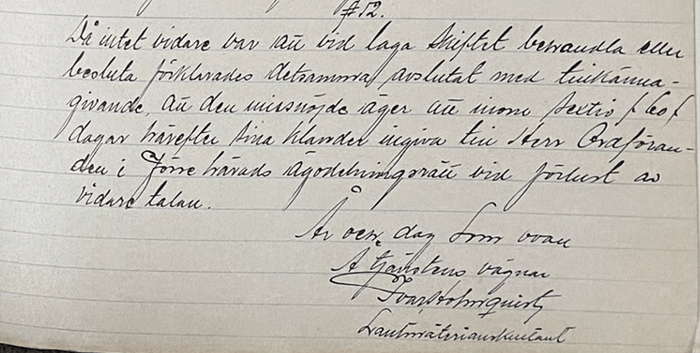 § 12.
Då intet vidare var att vid laga skiftet behandla eller
besluta förklarades detsamma avslutat med tillkänna-
givande, att den missnöjde äger att inom sextio /60/
dagar härefter sina klander ingiva till Herr Ordföran-
den i Färe härads ägodelningsrätt vid förlust av
vidare talan.
År och dag som ovan
Å tjänstens vägnar
Ivar Holmquist
Lantmäteriauskultant